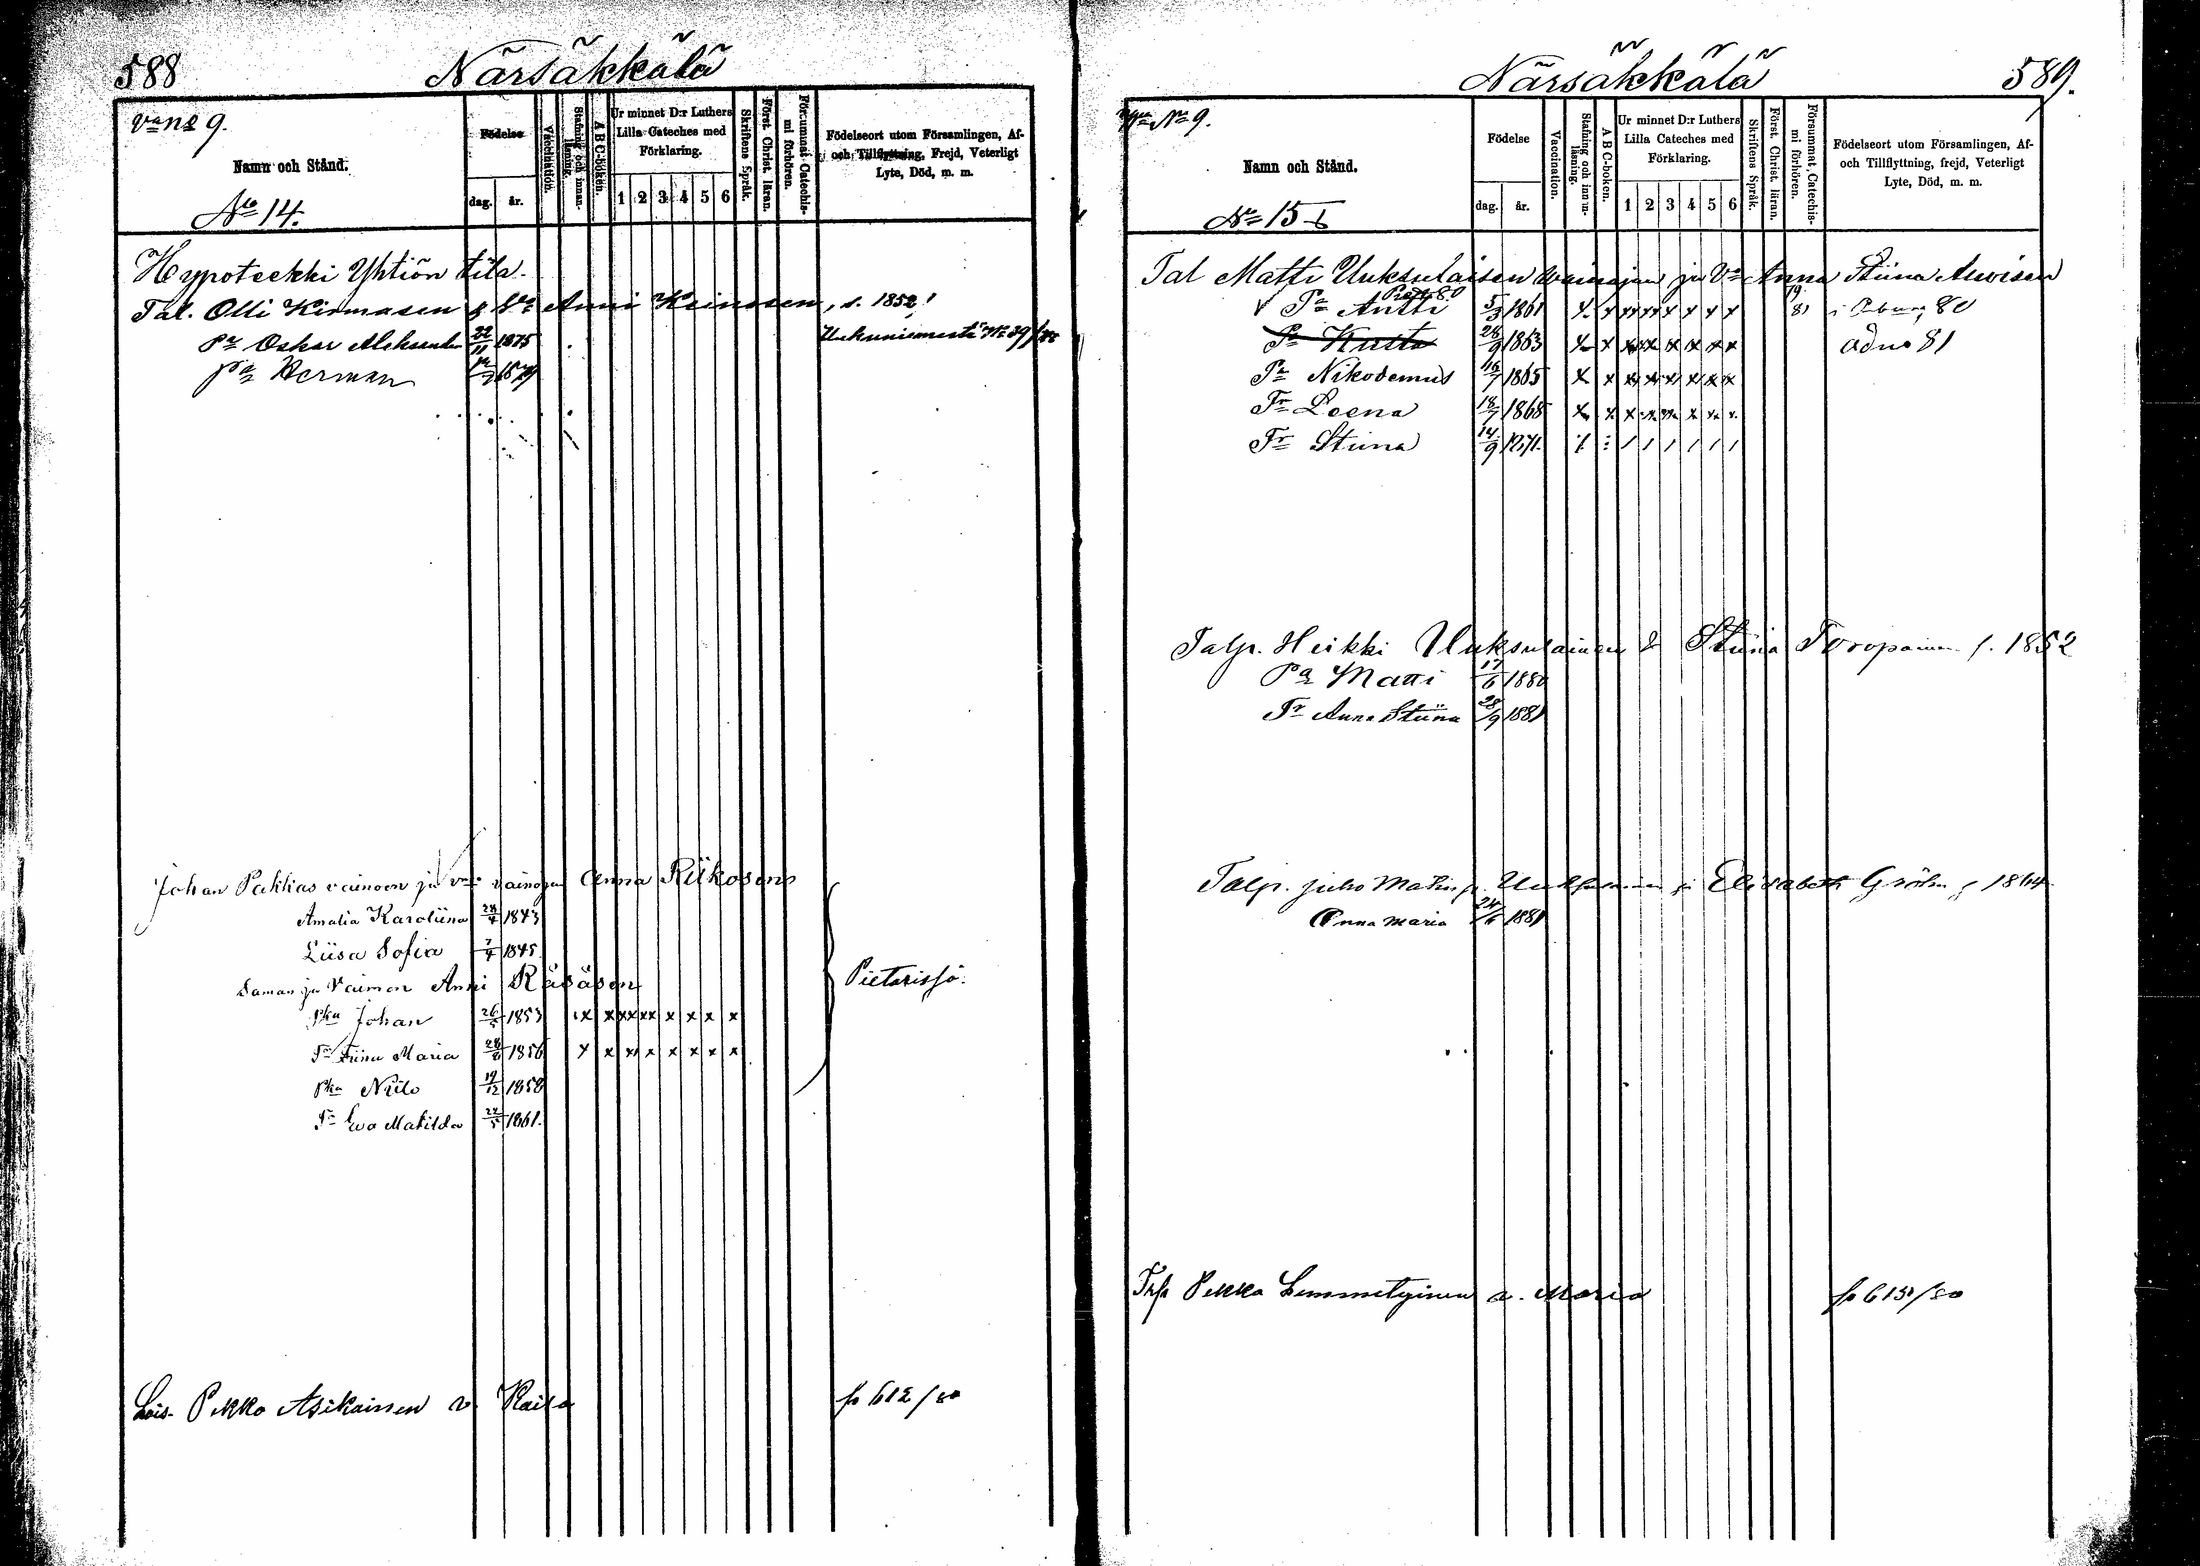 588
Närsäkkälä
Va No 9.
Namn och Stånd.
No 14.
Födelse
dag. år.
Vaccination.
Stafning och innanläsning.
A B C-boken.
Ur minnet D:r Luthers Lilla Cateches med Förklaring.
1 2 3 4 5 6
Skriftens Språk.
Först. Christ. läran.
Försummat Catechismi förhören.
Födelseort utom Församlingen, Af- och Tillflyttning, Frejd, Veterligt Lyte, Död, m. m.
Hypoteekki Yhtiön tila.
Tal. Olli Kirmasen & Vo Anni Keinosen, s. 1852!
Pa Oskar Aleksander 22/11 1875
Uukuniemestä No 29/
Pa Herman 1879
Johan Pakkas vainoon ja vainojan Anna Riikosens
Amalia Karoliina 28/4 1843
Liisa Sofia 7/4 1845
Saman ja Vaimon Anni Räsäsen
Pietarissa.
Pka Johan 26/5 1853 x x xx xx x x x x
Tr Tiina Maria 28/8 1856 x x x x x x x x
Pka Niilo 19/12 1858
Tr Ewa Matilda 24/5 1861.
Lois. Pekko Asikainen v. Kaisa
fo 612/80
Närsäkkälä
589.
No 9.
Namn och Stånd.
No 15
Födelse
dag. år.
Vaccination.
Stafning och innanläsning.
A B C-boken.
Ur minnet D:r Luthers Lilla Cateches med Förklaring.
1 2 3 4 5 6
Skriftens Språk.
Först. Christ. läran.
Försummat Catechismi förhören.
Födelseort utom Församlingen, Af- och Tillflyttning, frejd, Veterligt Lyte, Död, m. m.
Tal Matti Uuksulaisen vainajan ja Vo Anna Stiina Auvisen
80
Pa Antti 5/3 1861 x x xx x x x x x 81 80
Pa Kusta 28/9 1863 x x x x x x x x
81
Pa Nikodemus 16/7 1865 x x x x x x x x
Tr Leena 18/7 1868 x x x x x x x x
Tr Stiina 14/9 1871.
Talp. Heikki Uuksulainen & Stiina Toropainen s. 1852
Pa Matti 17/6 1880
Tr Anna Stiina 28/9 1881
Talp. Juho Matin p. Uuksulainen ja Elisabeth Gröhn s 1864
Anna Maria 24/6 1881
Pekka Lemmetyinen v. Maria
fo 613/80